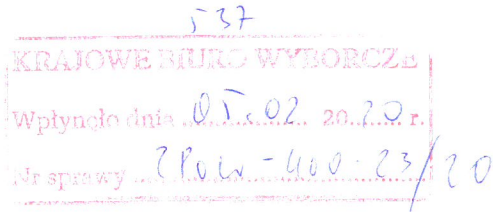 537
KRAJOWE BIURO WYBORCZE
Wpłynęło dnia 05.02. 2020 r.
Nr sprawy ZPOW-400-23/20